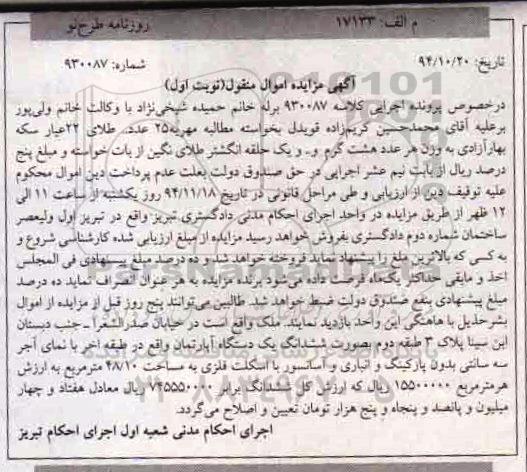 م الف: ۱۷۱۳۳
روزنامه طرح نو
تاریخ: ۹۴/۱۰/۲۰
شماره: ۹۳۰۰۸۷
آگهی مزایده اموال منقول(نوبت اول)
درخصوص پرونده اجرایی کلاسه ۹۳۰۰۸۷ برله خانم حمیده شیخی‌نژاد با وکالت خانم ولی‌پور
برعلیه آقای محمدحسین کریم‌زاده قویدل بخواسته مطالبه مهریه۲۵ عدد طلای ۲۲عیار سکه
بهارآزادی به وزن هر عدد هشت گرم و... و یک حلقه انگشتر طلای نگین از بات خواسته و مبلغ پنج
درصد ریال از بابت نیم عشر اجرایی در حق صندوق دولت بعلت عدم پرداخت دین اموال محکوم
علیه توقیف دین از ارزیابی و طی مراحل قانونی در تاریخ ۹۴/۱۱/۱۸ روز یکشنبه از ساعت ۱۱ الی
۱۲ ظهر از طریق مزایده در واحد اجرای احکام مدنی دادگستری تبریز واقع در تبریز اول ولیعصر
ساختمان شماره دوم دادگستری بفروش خواهد رسید مزایده از مبلغ ارزیابی شده کارشناسی شروع و
به کسی که بالاترین ملغ را پیشنهاد نماید فروخته خواهد شد و ده درصد مبلغ پیشنهادی فی المجلس
اخذ و مابقی حداکثر یک‌ماه فرصت داده می‌شود برنده مزایده به هر عنوان انصراف نماید ده درصد
مبلغ پیشنهادی بنفع صندوق دولت ضبط خواهد شد. طالبین می‌توانند پنج روز قبل از مزایده از اموال
بشرحذیل با هاهنگی این واحد بازدید نمایند. ملک واقع است در خیابان صدرالشعرا ـ جنب دبستان
ابن سینا پلاک ۳ طبقه دوم بصورت ششدانگ یک دستگاه آپارتمان واقع در طبقه آخر با نمای آجر
سه سانتی بدون پارکینگ و انباری و آسانسور با اسکلت فلزی به مساحت ۴۸/۱۰ مترمربع به ارزش
هرمترمربع ۱۵۵۰۰۰۰۰ ریال که ارزش کل ششدانگ برابر ۷۴۵۵۵۰۰۰۰ ریال معادل هفتاد و چهار
میلیون و پانصد و پنجاه و پنج هزار تومان تعیین و اصلاح می‌گردد.
اجرای احکام مدنی شعبه اول اجرای احکام تبریز